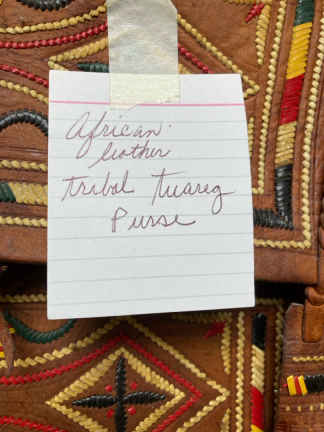 African
leather
tribal Tuareg
Purse